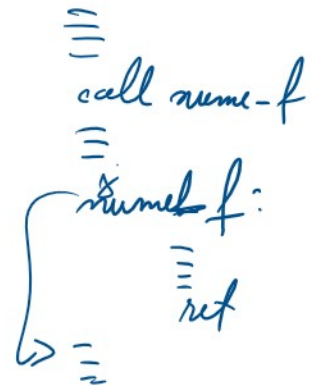 call nume-f
nume f:
ret